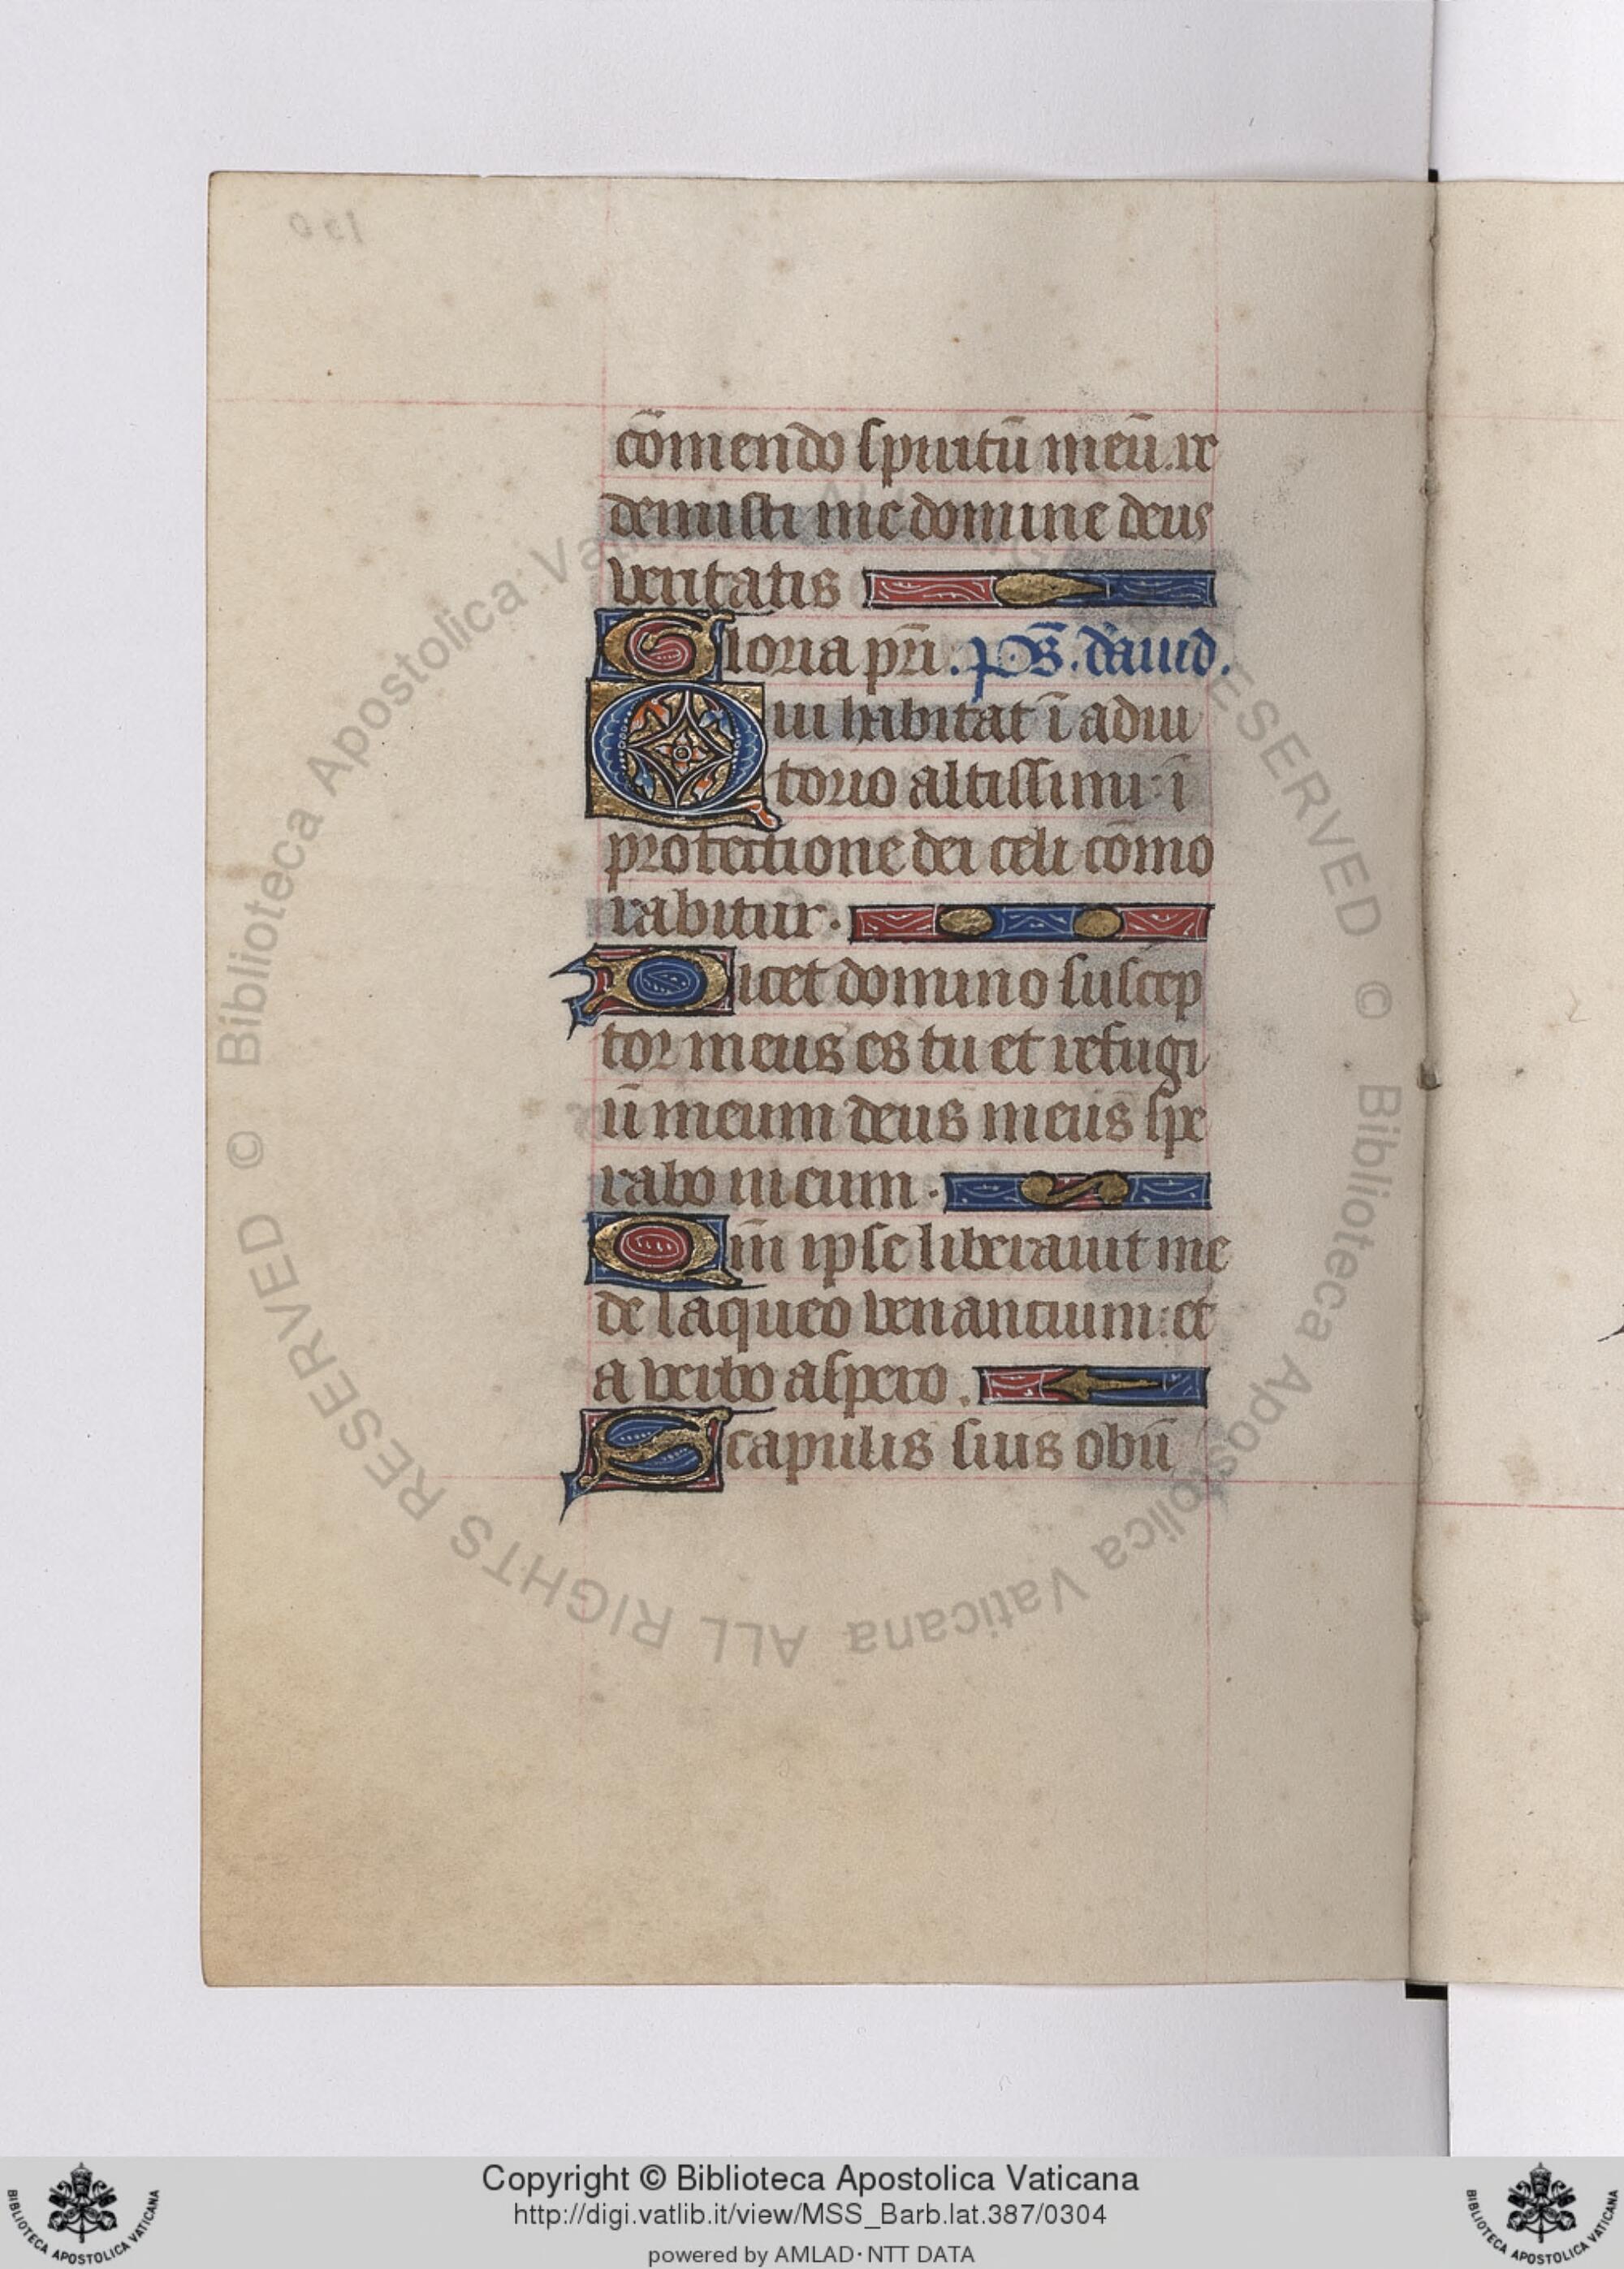 150
cōmendo spiritū meū. re
demisti me domine deus
veritatis
Gloria pr̄i. ps̄. dauid.
Qui habitat ī adiu
torio altissimi: ī
protectione dei celi cōmo
rabitur.
Dicet domino suscep
tor meus es tu et refugi
ū meum deus meus spe
rabo in eum.
Qm̄ ipse liberauit me
de laqueo venantium: et
a verbo aspero.
Scapulis suis obū
© Biblioteca Apostolica Vaticana ALL RIGHTS RESERVED © Biblioteca Apostolica Vaticana ALL RIGHTS RESERVED
Copyright © Biblioteca Apostolica Vaticana
http://digi.vatlib.it/view/MSS_Barb.lat.387/0304
powered by AMLAD·NTT DATA
BIBLIOTECA APOSTOLICA VATICANA
BIBLIOTECA APOSTOLICA VATICANA